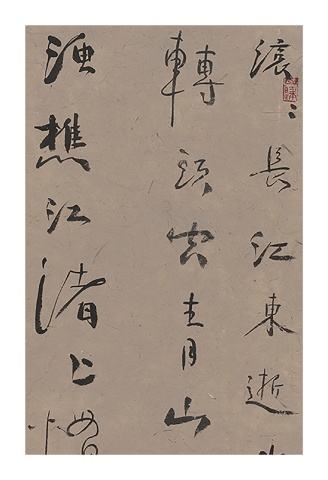 滚〻長江東逝
轉頭空青山
漁樵江渚上